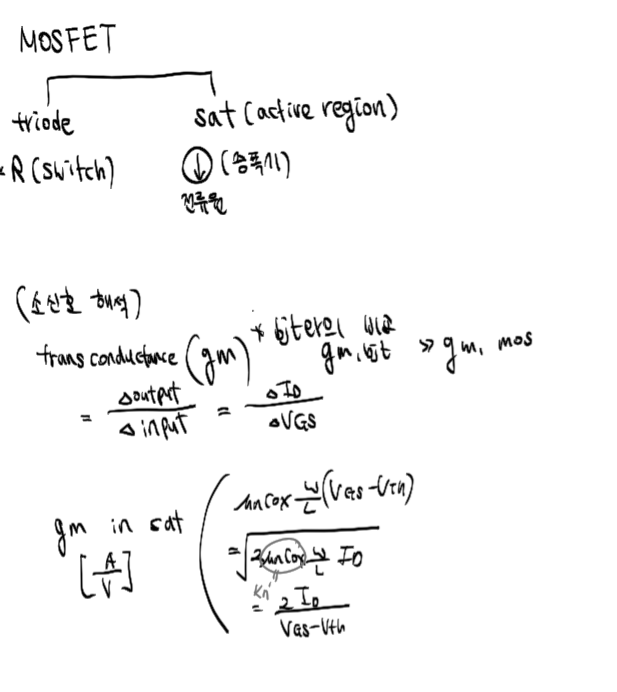 MOSFET
triode sat (active region)
R (switch) ↓ (증폭기)
전류원
(소신호 해석)
transconductance (gm) * bjt와의 비교
gm, bjt >> gm, mos
= Δoutput / Δinput = ΔID / ΔVGS
gm in sat [A/V]
μnCox W/L (VGS-Vth)
= √(2μnCox W/L ID)
kn'
= 2ID / (VGS-Vth)